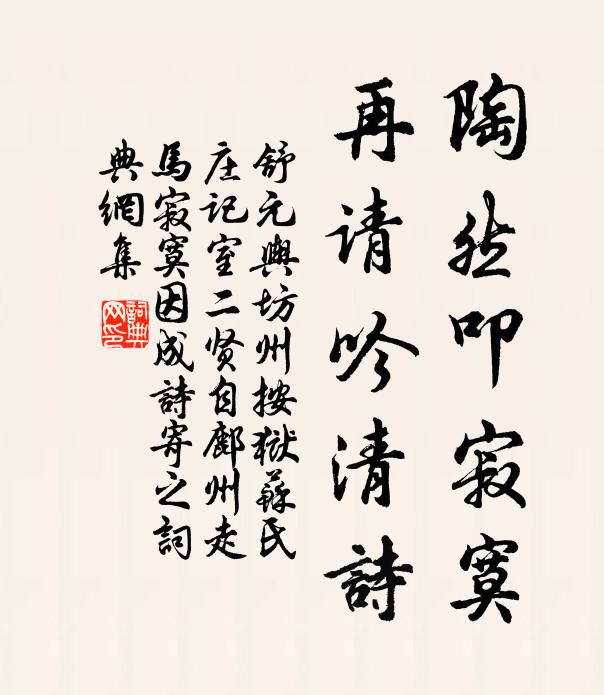 陶然叩寂寞
再请吟清詩
舒元輿坊州按獄蘇氏
庄记室二贤自鄜州走
馬寂寞因成詩寄之詞
典網集
詞典
网印